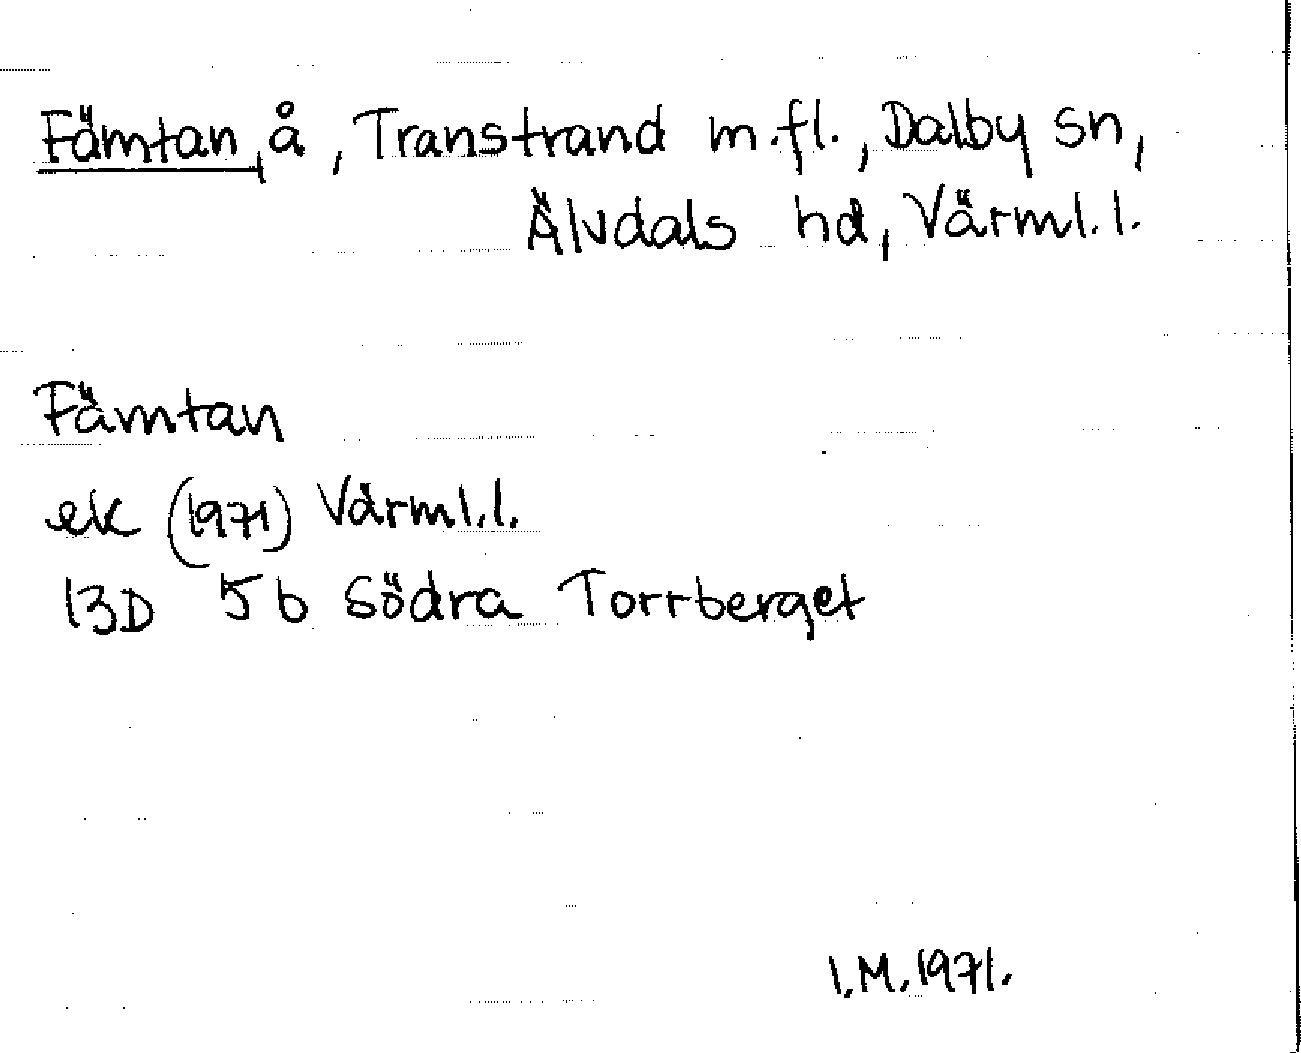 Fämtan, å, Transtrand m.fl., Dalby sn,
Älvdals hd, Värml.l.
Fämtan
ek (1971) Värml.l.
13D 5b Södra Torrberget
I.M. 1971.